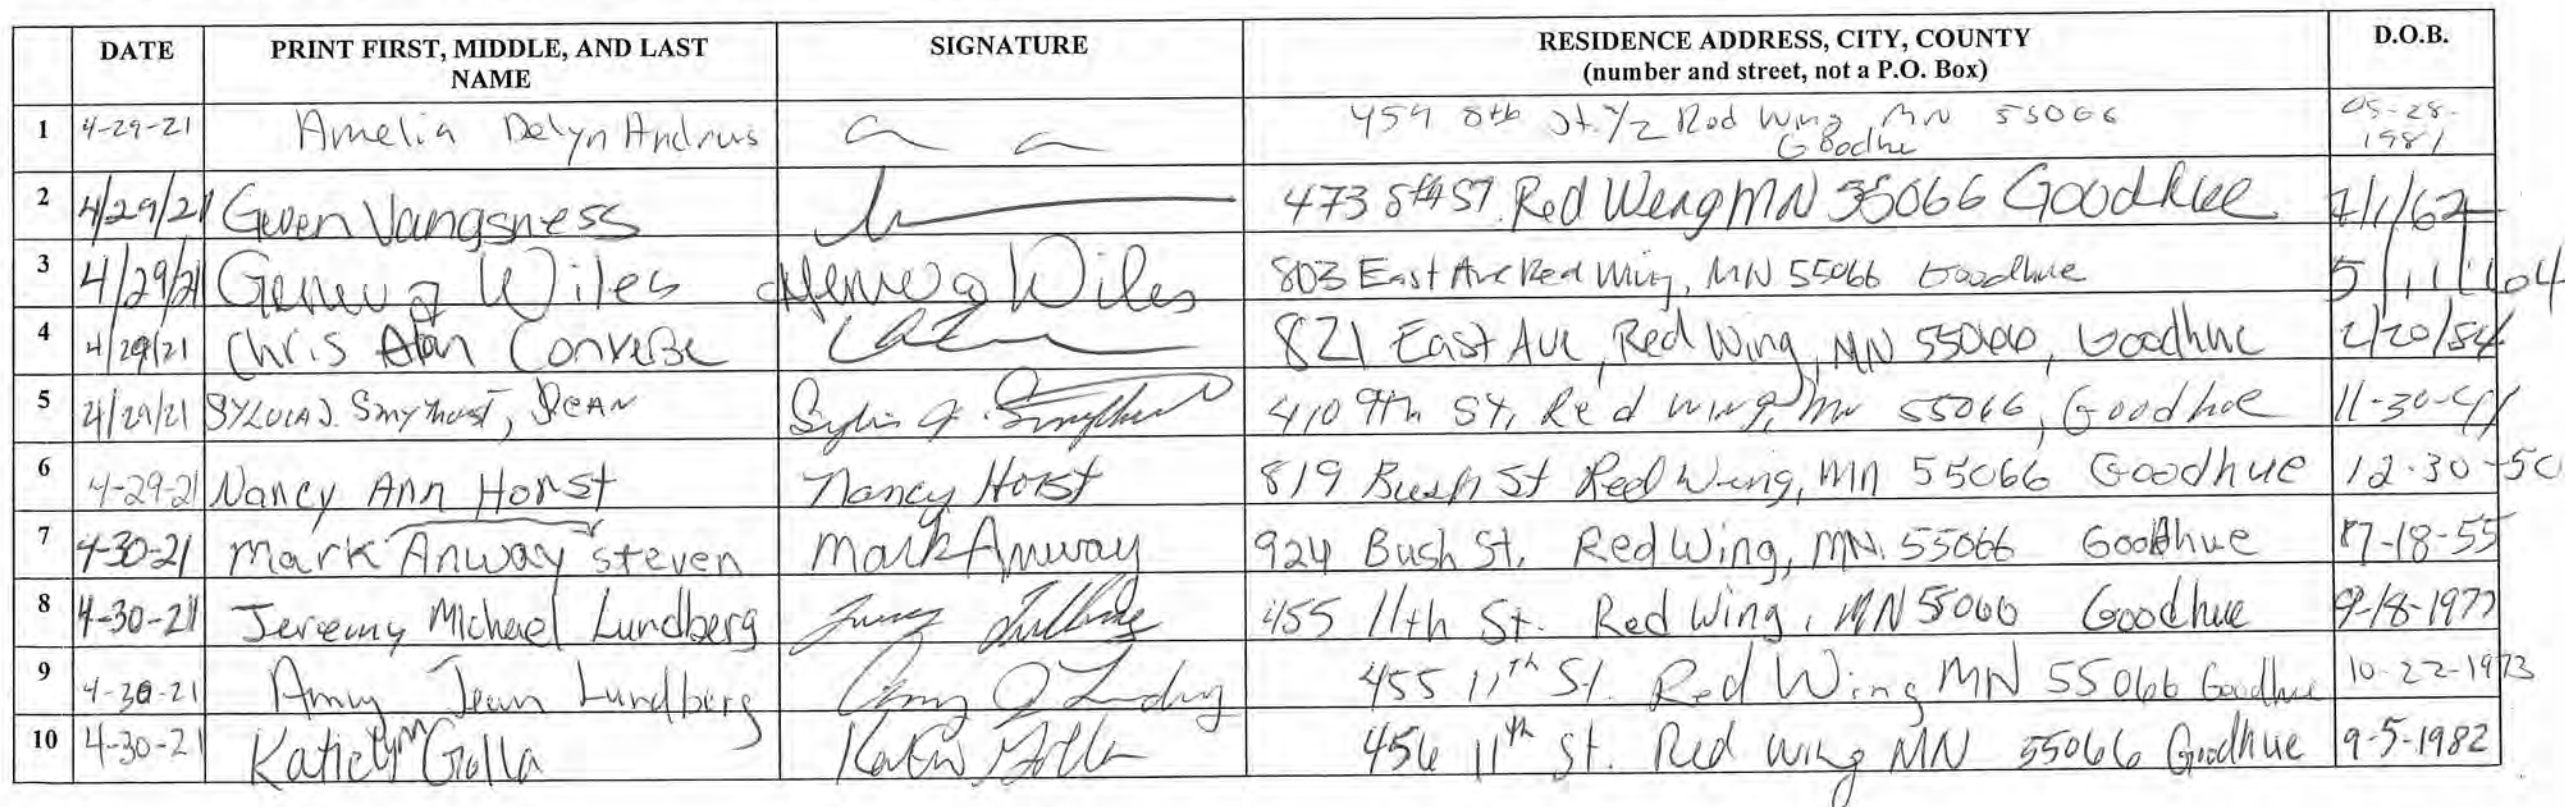 DATE PRINT FIRST, MIDDLE, AND LAST NAME SIGNATURE RESIDENCE ADDRESS, CITY, COUNTY (number and street, not a P.O. Box) D.O.B.
1 4-29-21 Amelia Delyn Andrus 459 8th St. 1/2 Red Wing MN 55066 Goodhu 05-28-1981
2 4/29/21 Gwen Vangsness 473 8th ST. Red Weng MN 55066 Goodhue 7/1/62
3 4/29/21 Geneva Wiles Geneva Wiles 803 East Ave Red Wing, MN 55066 Goodhue 5/11/64
4 4/29/21 Chris Alan Converse 821 East Ave, Red Wing, MN 55066, Goodhue 2/20/54
5 4/29/21 SYLVIA J. Smythurst, JEAN Sylvia J. Smythurst 410 9th St, Red wing, mn 55066, Goodhoe 11-30-41
6 4-29-21 Nancy Ann Horst Nancy Horst 819 Bush St Red Wing, MN 55066 Goodhue 12-30-50
7 4-30-21 Mark Anway steven Mark Anway 924 Bush St. Red Wing, MN. 55066 Goodhue 7-18-55
8 4-30-21 Jeremy Michael Lundberg 455 11th St. Red Wing, MN 55066 Goodhue 9-18-1977
9 4-30-21 Amy Jean Lundberg Amy J Lundberg 455 11th St. Red Wing MN 55066 Goodhue 10-22-1973
10 4-30-21 Katie Lynn Golla Katie Golla 456 11th St. Red Wing MN 55066 Goodhue 9-5-1982